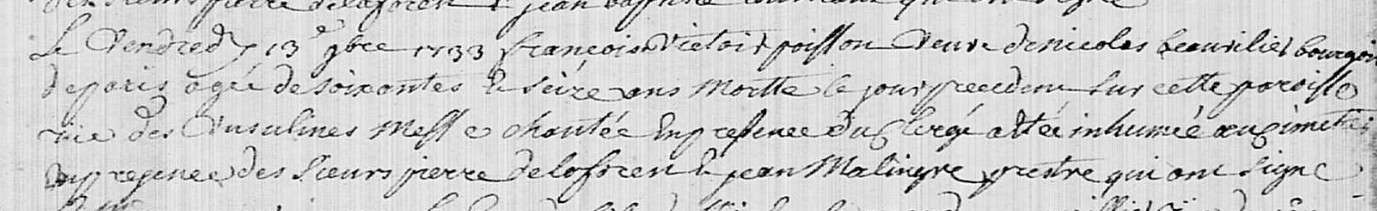 Le Vendredy 13e 9bre 1733 françoise Victoir poisson veuve de nicolas beauvilier bourgois
de paris agée de soixantes et seize ans Morte le jour precedent sur cette paroisse
rue des Ursulines Messe chantée En presence du Clergé a été inhumée au Cimetie
En presence des sieurs pierre delaforest et jean Malingre prestre qui ont signé